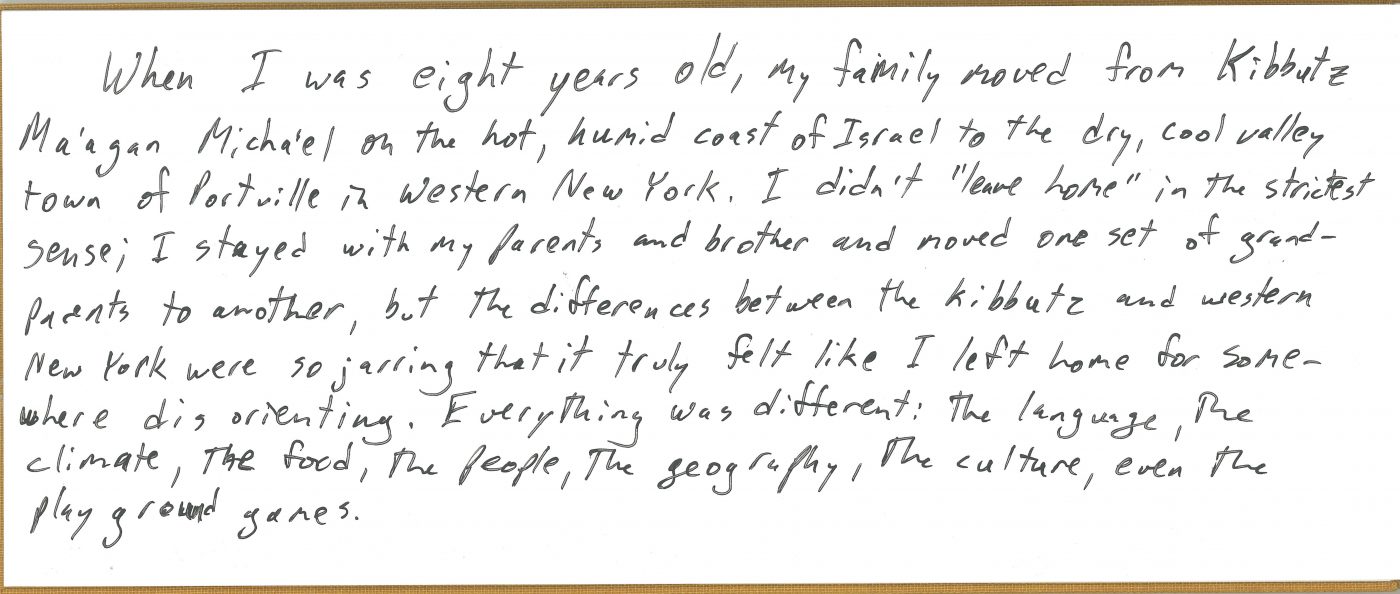 When I was eight years old, my family moved from Kibbutz
Ma'agan Micha'el on the hot, humid coast of Israel to the dry, cool valley
town of Portville in Western New York. I didn't "leave home" in the strictest
sense; I stayed with my parents and brother and moved one set of grand-
parents to another, but the differences between the kibbutz and western
New York were so jarring that it truly felt like I left home for some-
where disorienting. Everything was different: the language, the
climate, the food, the people, the geography, the culture, even the
playground games.